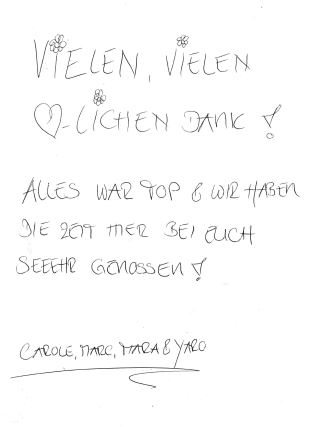 VIELEN, VIELEN
♡-LICHEN DANK!
ALLES WAR TOP & WIR HABEN
DIE ZEIT HIER BEI EUCH
SEEEHR GENOSSEN!
CAROLE, MARC, MARA & YARO